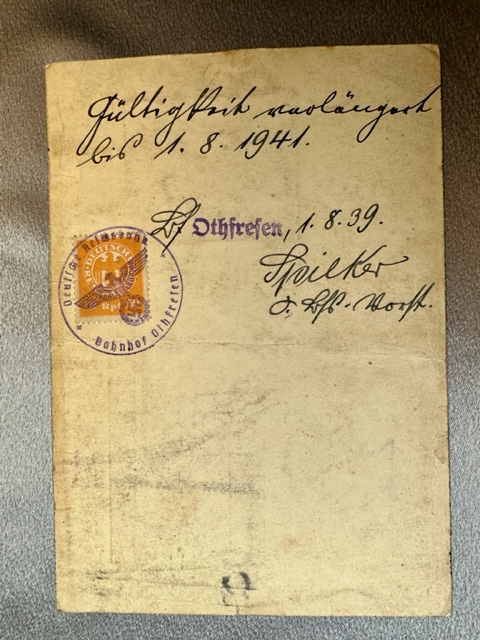 Gültigkeit verlängert
bis 1. 8. 1941.
Bf Othfresen, 1. 8. 39.
Spilker
d. Bfs. Vorst.
Deutsche Reichsbahn
Bahnhof Othfresen
DEUTSCHE
Rpf